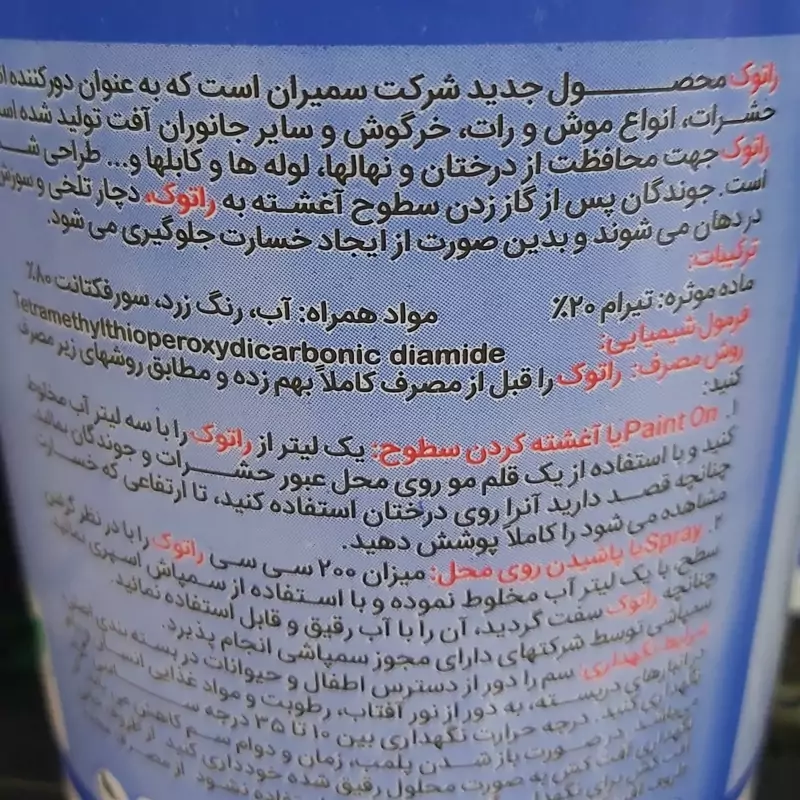 راتوک محصـــول جدید شرکت سمیران است که به عنوان دورکننده
حشرات، انواع موش و رات، خرگوش و سایر جانوران آفت تولید شده
راتوک جهت محافظت از درختان و نهالها، لوله ها و کابلها و... طراحی
است. جوندگان پس از گاز زدن سطوح آغشته به راتوک، دچار تلخی و سوزش
در دهان می شوند و بدین صورت از ایجاد خسارت جلوگیری می شود.
ترکیبات:
ماده موثره: تیرام ۲۰٪ مواد همراه: آب، رنگ زرد، سورفکتانت ۸۰٪
فرمول شیمیایی: Tetramethylthioperoxydicarbonic diamide
روش مصرف: راتوک را قبل از مصرف کاملاً بهم زده و مطابق روشهای زیر مصرف
کنید:
۱. Paint On یا آغشته کردن سطوح: یک لیتر از راتوک را با سه لیتر آب مخلوط
کنید و با استفاده از یک قلم مو روی محل عبور حشرات و جوندگان بمالید.
چنانچه قصد دارید آنرا روی درختان استفاده کنید، تا ارتفاعی که خسارت
مشاهده می شود را کاملاً پوشش دهید.
۲. Spray یا پاشیدن روی محل: میزان ۲۰۰ سی سی راتوک را با در نظر گرفتن
سطح، با یک لیتر آب مخلوط نموده و با استفاده از سمپاش اسپری نمایید.
چنانچه راتوک سفت گردید، آن را با آب رقیق و قابل استفاده نمائید.
سمپاشی توسط شرکتهای دارای مجوز سمپاشی انجام پذیرد.
شرایط نگهداری: سم را دور از دسترس اطفال و حیوانات در بسته بندی اصلی
در انبارهای دربسته، به دور از نور آفتاب، رطوبت و مواد غذایی انسان
نگهداری کنید. درجه حرارت نگهداری بین ۱۰ تا ۳۵ درجه
در صورت باز شدن پلمب، زمان و دوام سم کاهش
نگهداری این آفت کش به صورت محلول رقیق شده خودداری کنید.
آفت کش برای نگهداری استفاده نشود.